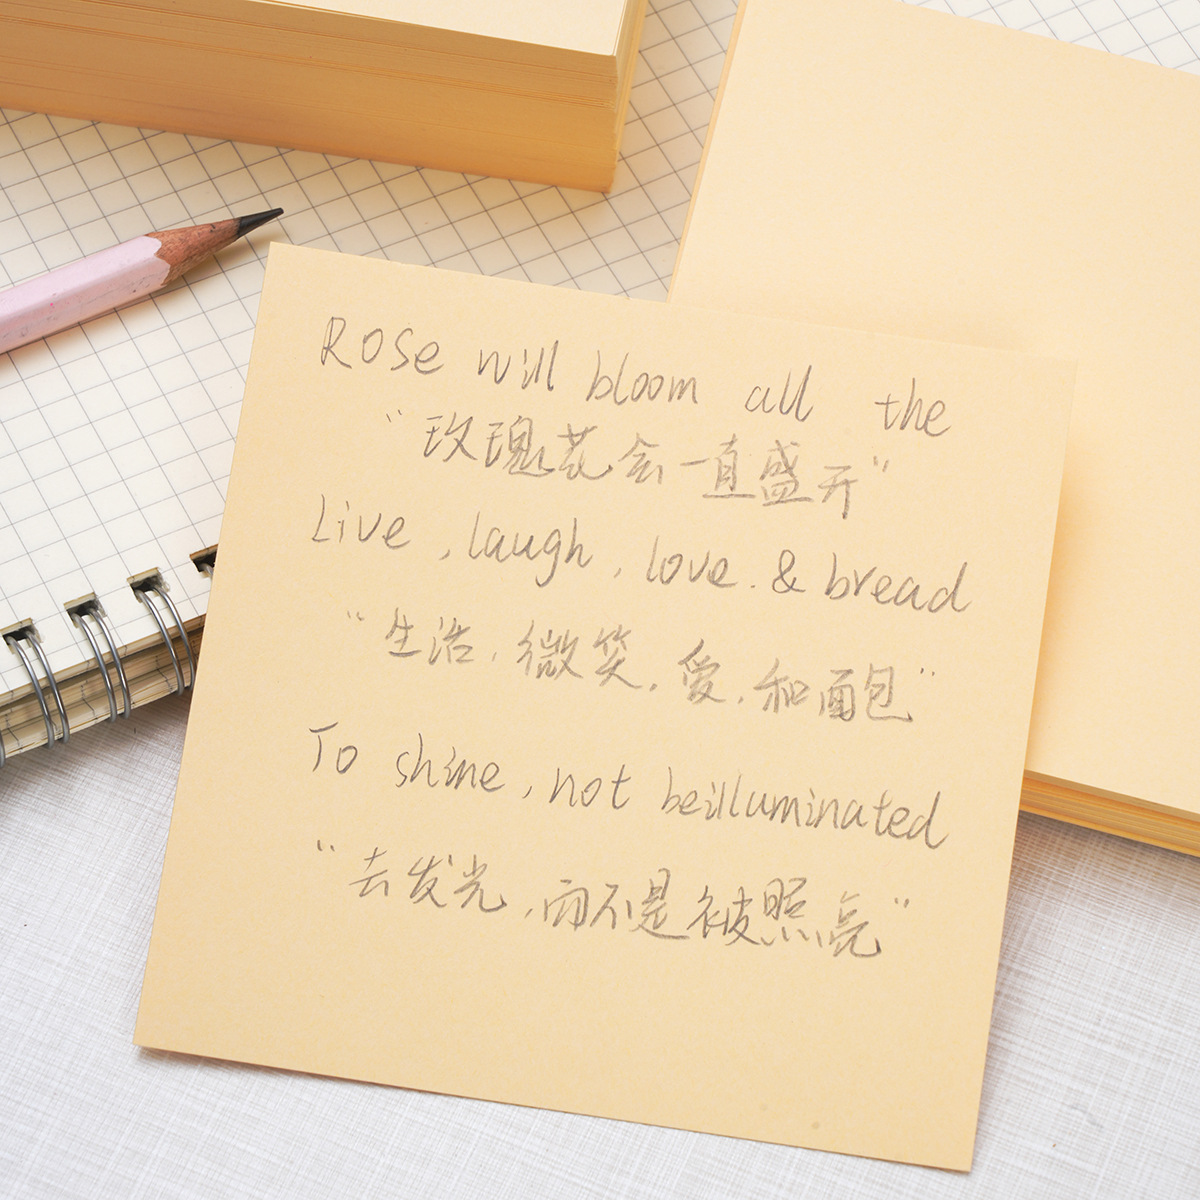 Rose will bloom all the
“玫瑰花会一直盛开”
Live , laugh , love . & bread
“生活，微笑，爱，和面包”
To shine , not beilluminated
“去发光，而不是被照亮”